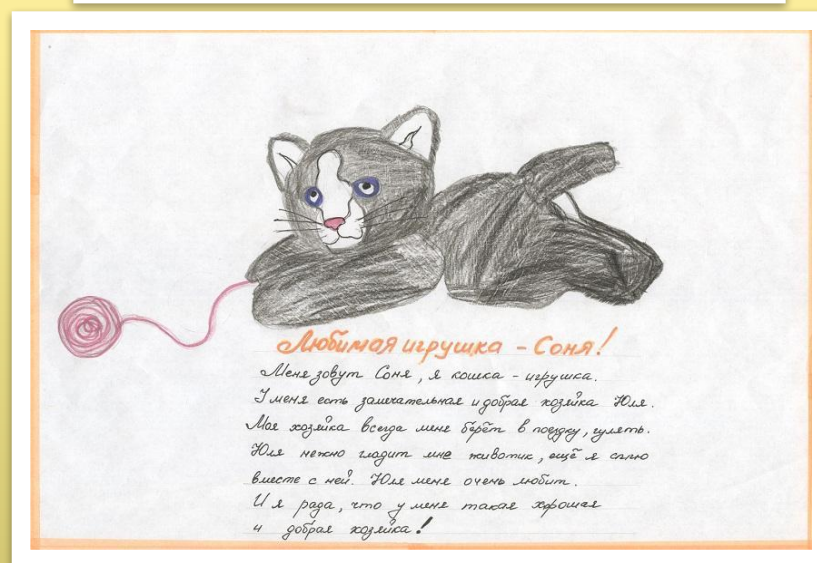 Любимая игрушка - Соня!
Меня зовут Соня, я кошка - игрушка.
У меня есть замечательная и добрая хозяйка Юля.
Моя хозяйка всегда меня берёт в поездку, гулять.
Юля нежно гладит мне животик, ещё я сплю
вместе с ней. Юля меня очень любит.
И я рада, что у меня такая хорошая
и добрая хозяйка!